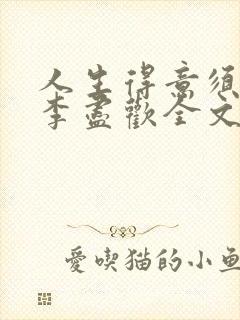 人生得意须
李尽欢全文
爱吃猫的小鱼